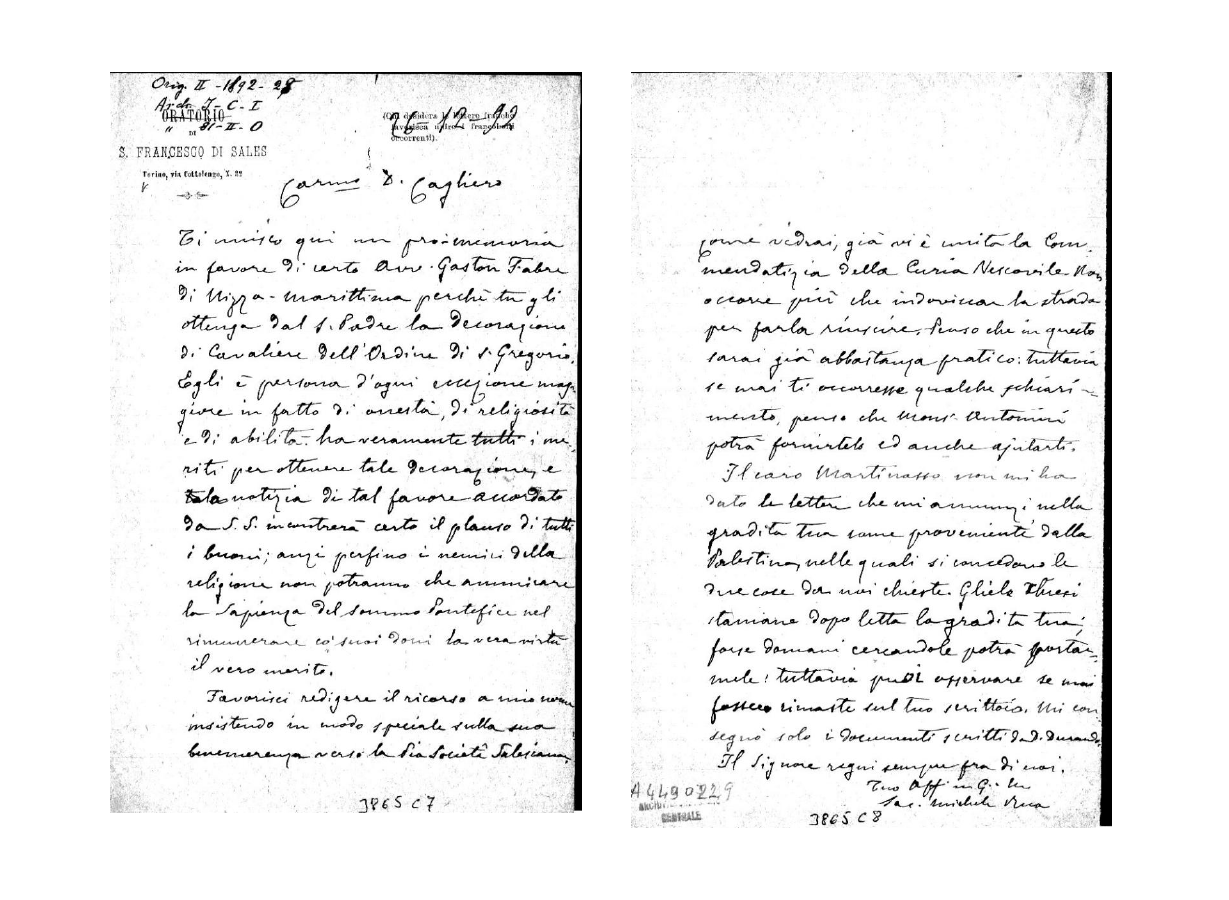 Orig. II - 1892 - 28
Arch. J - C - I
ORATORIO
" 31 - II - O
DI
S. FRANCESCO DI SALES
Torino, via Cottolengo, N. 32
(Chi desidera lettere franche
favorisca unire i francobolli
occorrenti).
16 - 12 - 92
Carmo D. Cagliero
Ti unisco qui un pro-memoria
in favore di certo Avv. Gaston Fabre
di Nizza-marittima perchè tu gli
ottenga dal S. Padre la decorazione
di Cavaliere dell'Ordine di S. Gregorio.
Egli è persona d'ogni eccezione mag-
giore in fatto di onestà, di religiosità
e di abilità. ha veramente tutti i me-
riti per ottenere tale decorazione, e
la notizia di tal favore accordato
da S. S. incontrerà certo il plauso di tutti
i buoni; anzi perfino i nemici della
religione non potranno che ammirare
la Sapienza del sommo Pontefice nel
rimunerare co' suoi doni la vera virtù
il vero merito.
Favorisci redigere il ricorso a mio nome
insistendo in modo speciale sulla sua
benemerenza verso la Pia Società Salesiana,
3865 C 7
come vedrai, già vi è unita la Com-
mendatizia della Curia Vescovile. Non
occorre più che indovinar la strada
per farla riuscire. Penso che in questo
sarai già abbastanza pratico: tuttavia
se mai ti occorresse qualche schiari-
mento, penso che Mons. Antonini
potrà fornirtelo ed anche ajutarti.
Il caro Martinasso non mi ha
dato le lettere che mi annunzi nella
gradita tua come proveniente dalla
Palestina, nelle quali si concedono le
due cose da noi chieste. Gliele chiesi
stamane dopo letta la gradita tua;
forse domani cercandole potrà portar-
mele: tuttavia puoi osservare se mai
fossero rimaste sul tuo scrittoio. Mi con-
segnò solo i documenti scritti da D. Durando.
Il Signore regni sempre fra di noi.
Tuo Aff in G. e M
Sac. Michele Rua
A4490229
ARCHIVIO
CENTRALE
3865 C 8